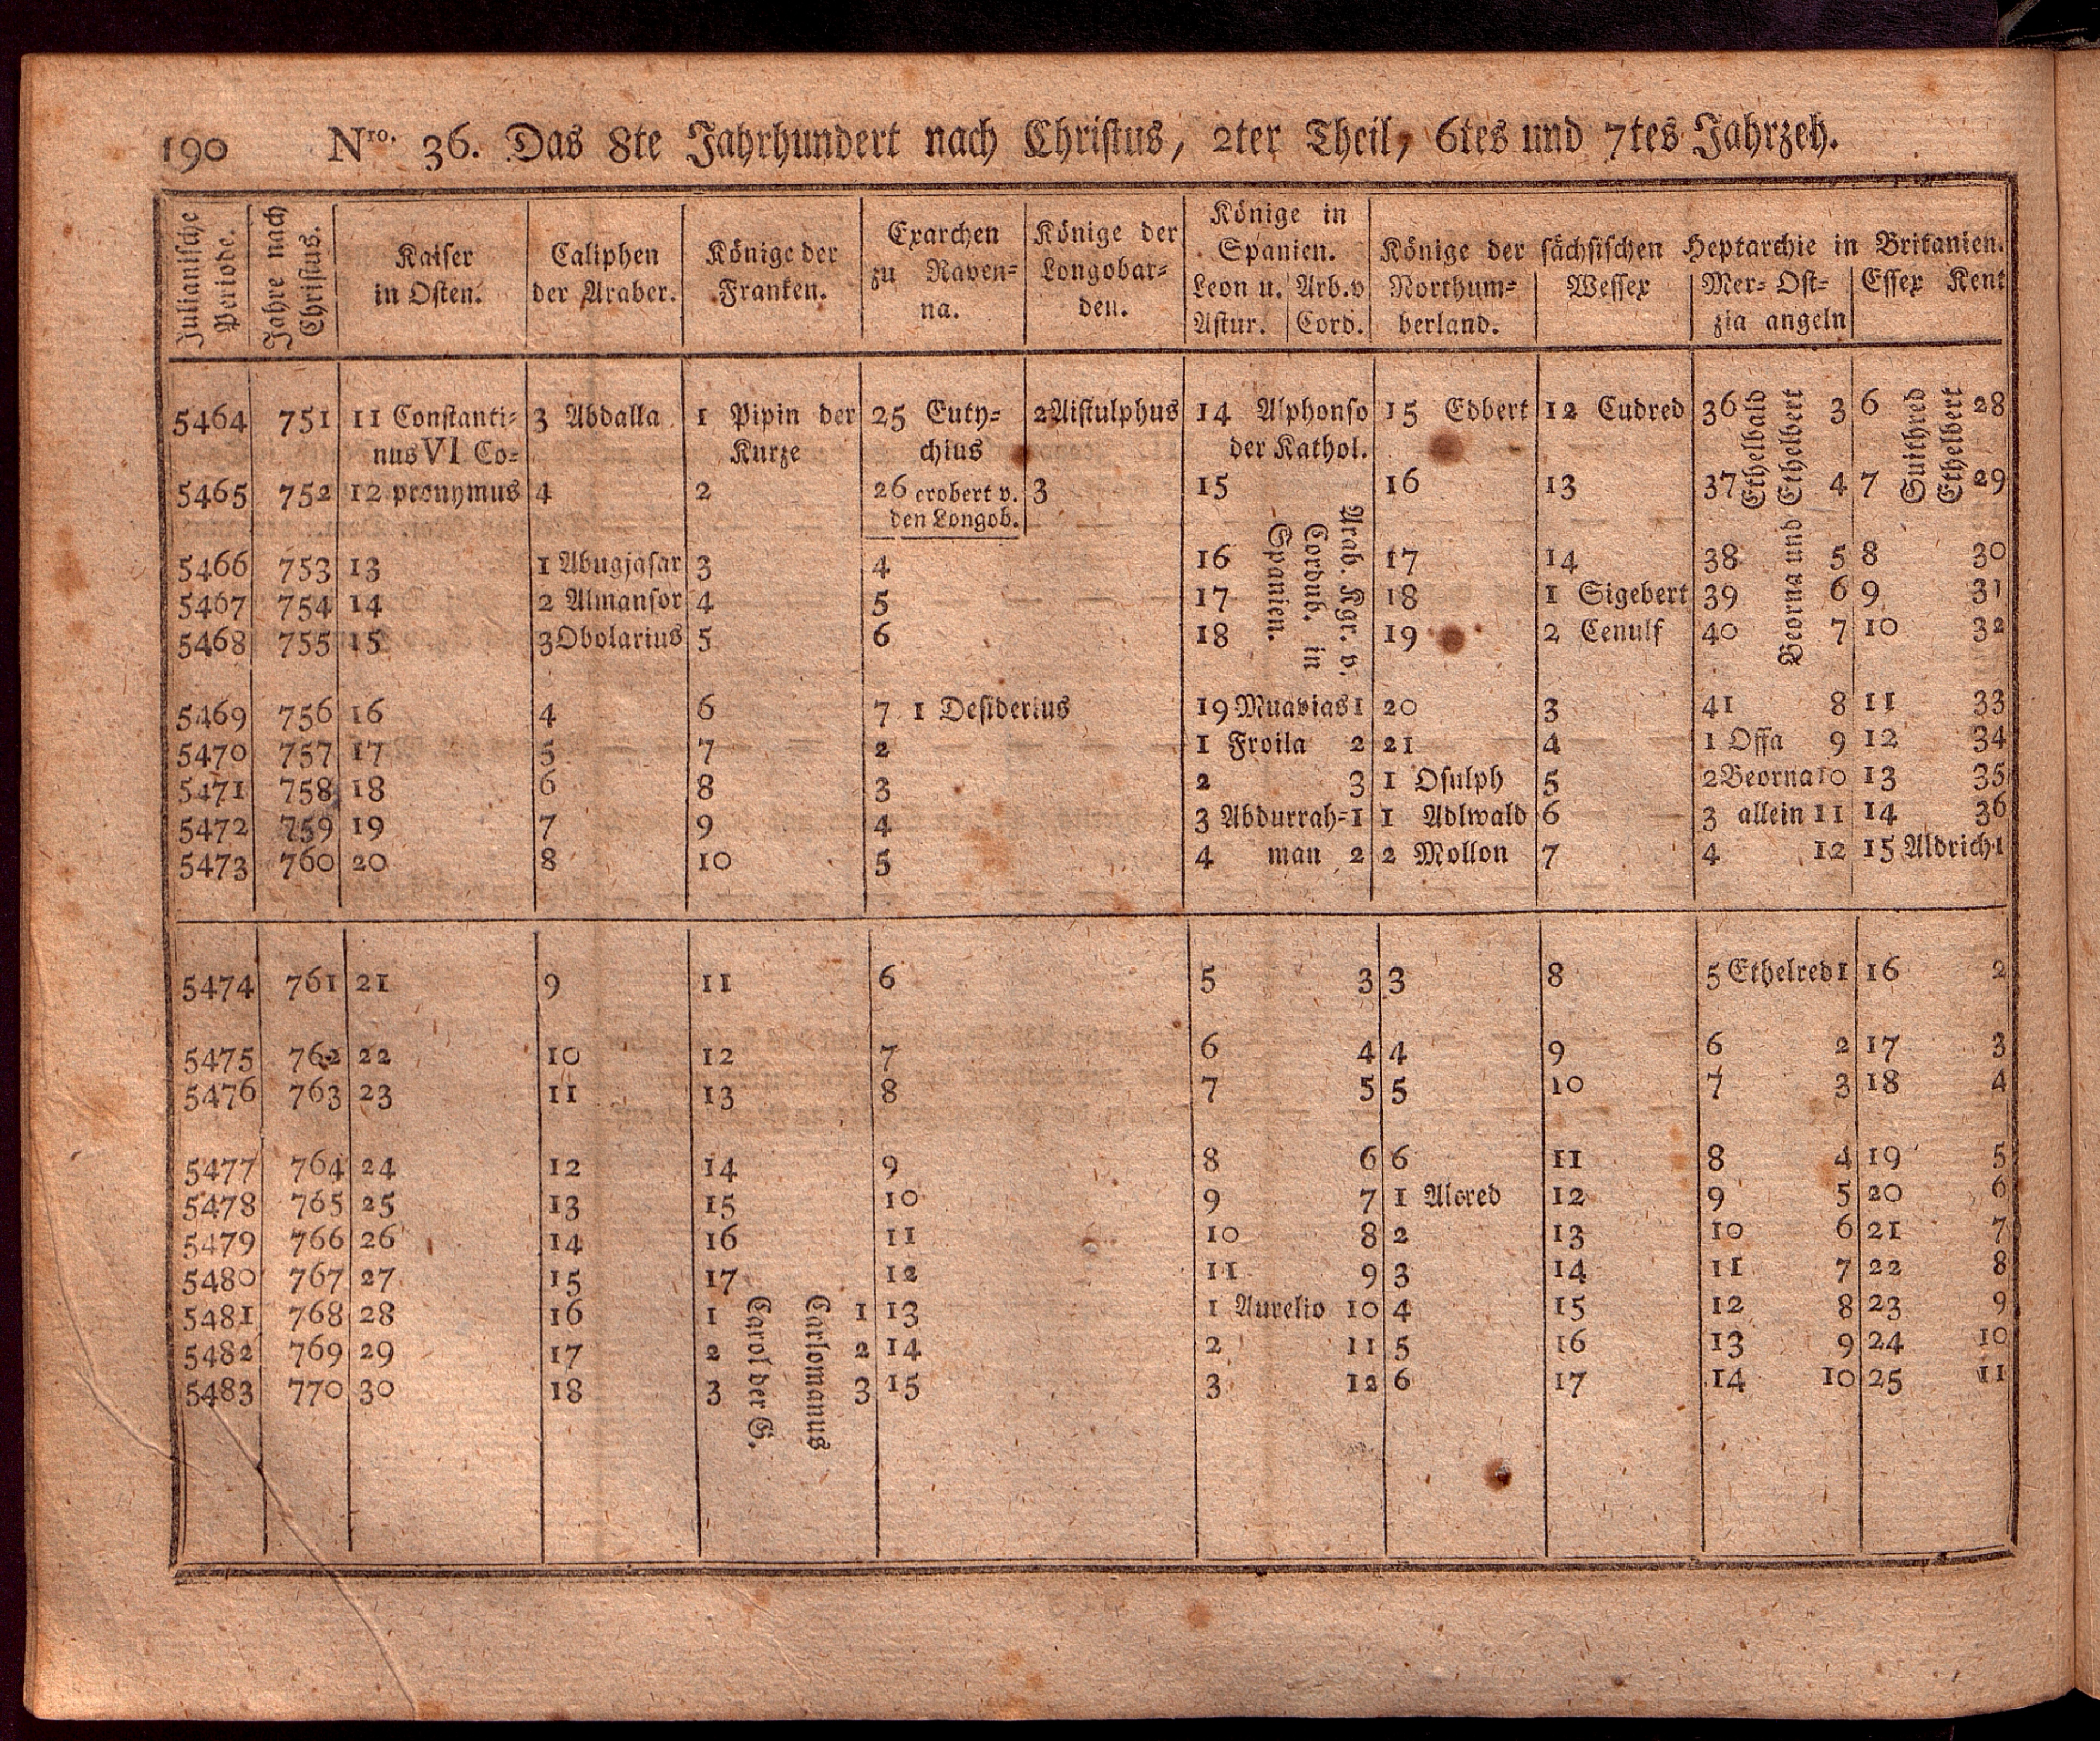 190 Nro. 36. Das 8te Jahrhundert nach Christus, 2ter Theil, 6tes und 7tes Jahrzeh.
Julianische Periode.
Jahre nach Christus.
Kaiser in Osten.
Caliphen der Araber.
Könige der Franken.
Exarchen zu Raven= na.
Könige der Longobar= den.
Könige in Spanien.
Leon u. Astur.
Arb. v Cord.
Könige der sächsischen Heptarchie in Britanien.
Northum= berland.
Wessex
Mer= zia
Ost= angeln
Essex
Kent
5464 751 11 Constanti= 3 Abdalla 1 Pipin der 25 Euty= 2 Aistulphus 14 Alphonso 15 Edbert 12 Cudred 36 3 6 28
nus VI Co= Kurze chius der Kathol.
5465 752 12 pronymus 4 2 26 erobert v. 3 15 16 13 37 4 7 29
den Longob.
Ethelbald
Beorna und Ethelbert
Suithred
Ethelbert
Arab. Kgr. v. Cordub. in Spanien.
5466 753 13 1 Abugjafar 3 4 16 17 14 38 5 8 30
5467 754 14 2 Almansor 4 5 17 18 1 Sigebert 39 6 9 31
5468 755 15 3 Obolarius 5 6 18 19 2 Cenulf 40 7 10 32
5469 756 16 4 6 7 1 Desiderius 19 Muavias 1 20 3 41 8 11 33
5470 757 17 5 7 2 1 Froila 2 21 4 1 Offa 9 12 34
5471 758 18 6 8 3 2 3 1 Osulph 5 2 Beorna 10 13 35
5472 759 19 7 9 4 3 Abdurrah= 1 1 Adlwald 6 3 allein 11 14 36
5473 760 20 8 10 5 4 man 2 2 Mollon 7 4 12 15 Aldrich 1
5474 761 21 9 11 6 5 3 3 8 5 Ethelred 1 16 2
5475 762 22 10 12 7 6 4 4 9 6 2 17 3
5476 763 23 11 13 8 7 5 5 10 7 3 18 4
5477 764 24 12 14 9 8 6 6 11 8 4 19 5
5478 765 25 13 15 10 9 7 1 Alcred 12 9 5 20 6
5479 766 26 14 16 11 10 8 2 13 10 6 21 7
5480 767 27 15 17 12 11 9 3 14 11 7 22 8
5481 768 28 16 1 1 13 1 Aurelio 10 4 15 12 8 23 9
5482 769 29 17 2 2 14 2 11 5 16 13 9 24 10
5483 770 30 18 3 3 15 3 12 6 17 14 10 25 11
Carol der G.
Carlomanus